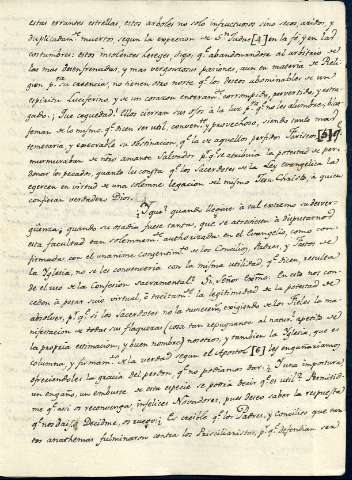 estas errantes estrellas, estos arboles no solo infructuosos sino secos, aridos, y
duplicadamte. muertos segun la expresion de Sn. Judas [4] en la fé, y en las
costumbres: estos insolentes hereges, digo, qe. abandonandose al arbitrio de
las mas desenfrenadas, y mas vergonzosas pasiones, aun en materia de Reli-
gion pa. su creencia, no tienen otro norte qe. los deseos abominables de un
espiritu Luciferino, y de un corazon enteramte. corrompido, pervertido, y estra-
gado; ¡Que ceguedad! Ellos cierran sus ojos á la luz pa. qe. no les alumbre, blas-
feman de lo mismo qe. dicen ser util, convente. y provechoso, siendo tanto mas
temeraria, y execrable su obstinacion, qe. la de aquellos perfidos Fariseos [5] qe.
murmuraban de ntro amante Salvador pr. qe. se atribuia la potestad de per-
donar los pecados, quanto les consta qe. los Sacerdotes de la Ley evangelica la
egercen en virtud de una solemne legacion del mismo Jesu Christo, á quien
confiesan verdadero Dios.
¿Y que? quando llegase á tal extremo su desver-
güenza; quando su osadia fuese tanta, que se atreviesen á disputarnos
esta facultad tan solemnemte. authorizada en el evangelio, como con-
firmada con el unanime consentimto. de los Concilios, Padres, y Fastos de
la Yglesia, no se les convenceria con la misma utilidad qe. dicen resulta
de el uso de la Confesion sacramental? Si, Señor Exmo: En esto nos con-
ceden á pesar suyo virtual, ó tacitamte. la legitimidad de la potestad de
absolver, pr. qe. si los Sacerdotes no la tuviesen, exigiendo de los Fieles la ma-
nifestacion de todas sus flaquezas (cosa tan repugnante al natural apetito de
la propia estimacion, y buen nombre) nosotros, y tambien la Yglesia, que es
columna, y firmamto. de la verdad segun el Apostol [6] les engañariamos
ofreciendoles la gracia del perdon, qe. no podiamos dar: ¿Y una impostura,
un engaño, un embuste de esta especie se podria decir qe. es util? Permitid-
me qe. asi os reconvenga, infelices Novadores, pues deseo saber la respuesta
qe. nos dais. Decidme, os ruego: ¿Es creible qe. los Padres, y Concilios que tan-
tos anathemas fulminaron contra los Priscilianistas, pr. qe. defendian ser